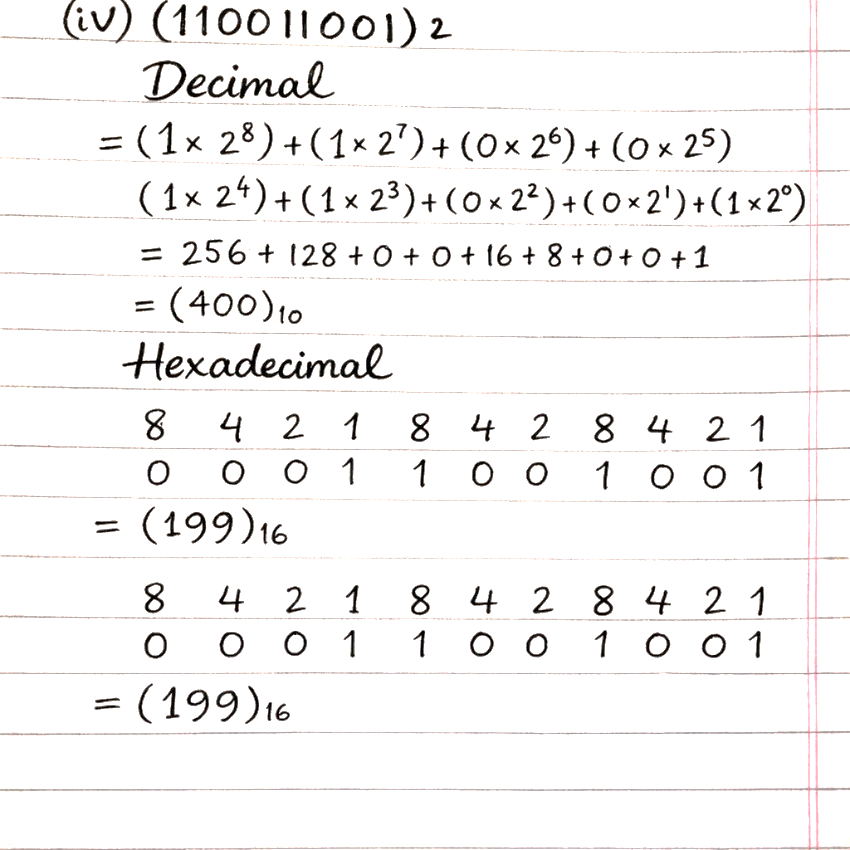 (iv) (110011001)2
Decimal
= (1 × 2⁸) + (1 × 2⁷) + (0 × 2⁶) + (0 × 2⁵)
(1 × 2⁴) + (1 × 2³) + (0 × 2²) + (0 × 2¹) + (1 × 2⁰)
= 256 + 128 + 0 + 0 + 16 + 8 + 0 + 0 + 1
= (400)₁₀
Hexadecimal
8 4 2 1 8 4 2 8 4 2 1
0 0 0 1 1 0 0 1 0 0 1
= (199)₁₆
8 4 2 1 8 4 2 8 4 2 1
0 0 0 1 1 0 0 1 0 0 1
= (199)₁₆